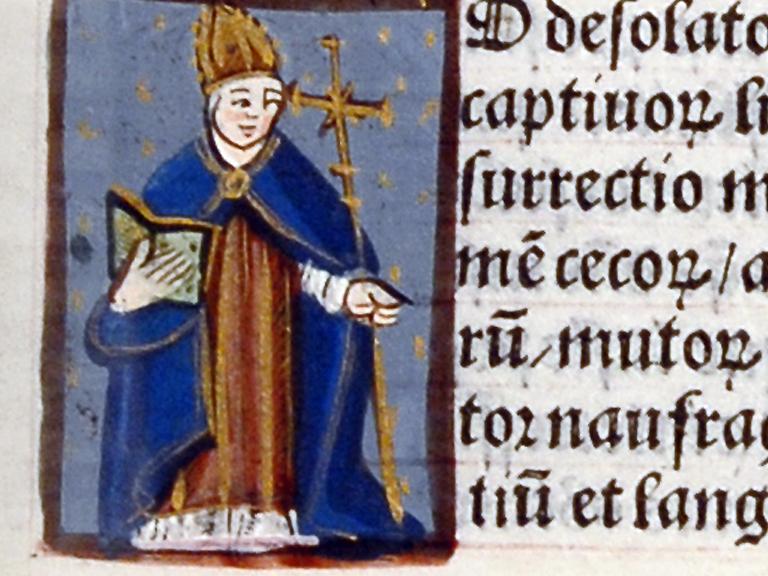 D desolato
captiuoꝝ li
surrectio m
mē cecoꝝ / a
rū / mutoꝝ
tor naufrag
tiū et lang